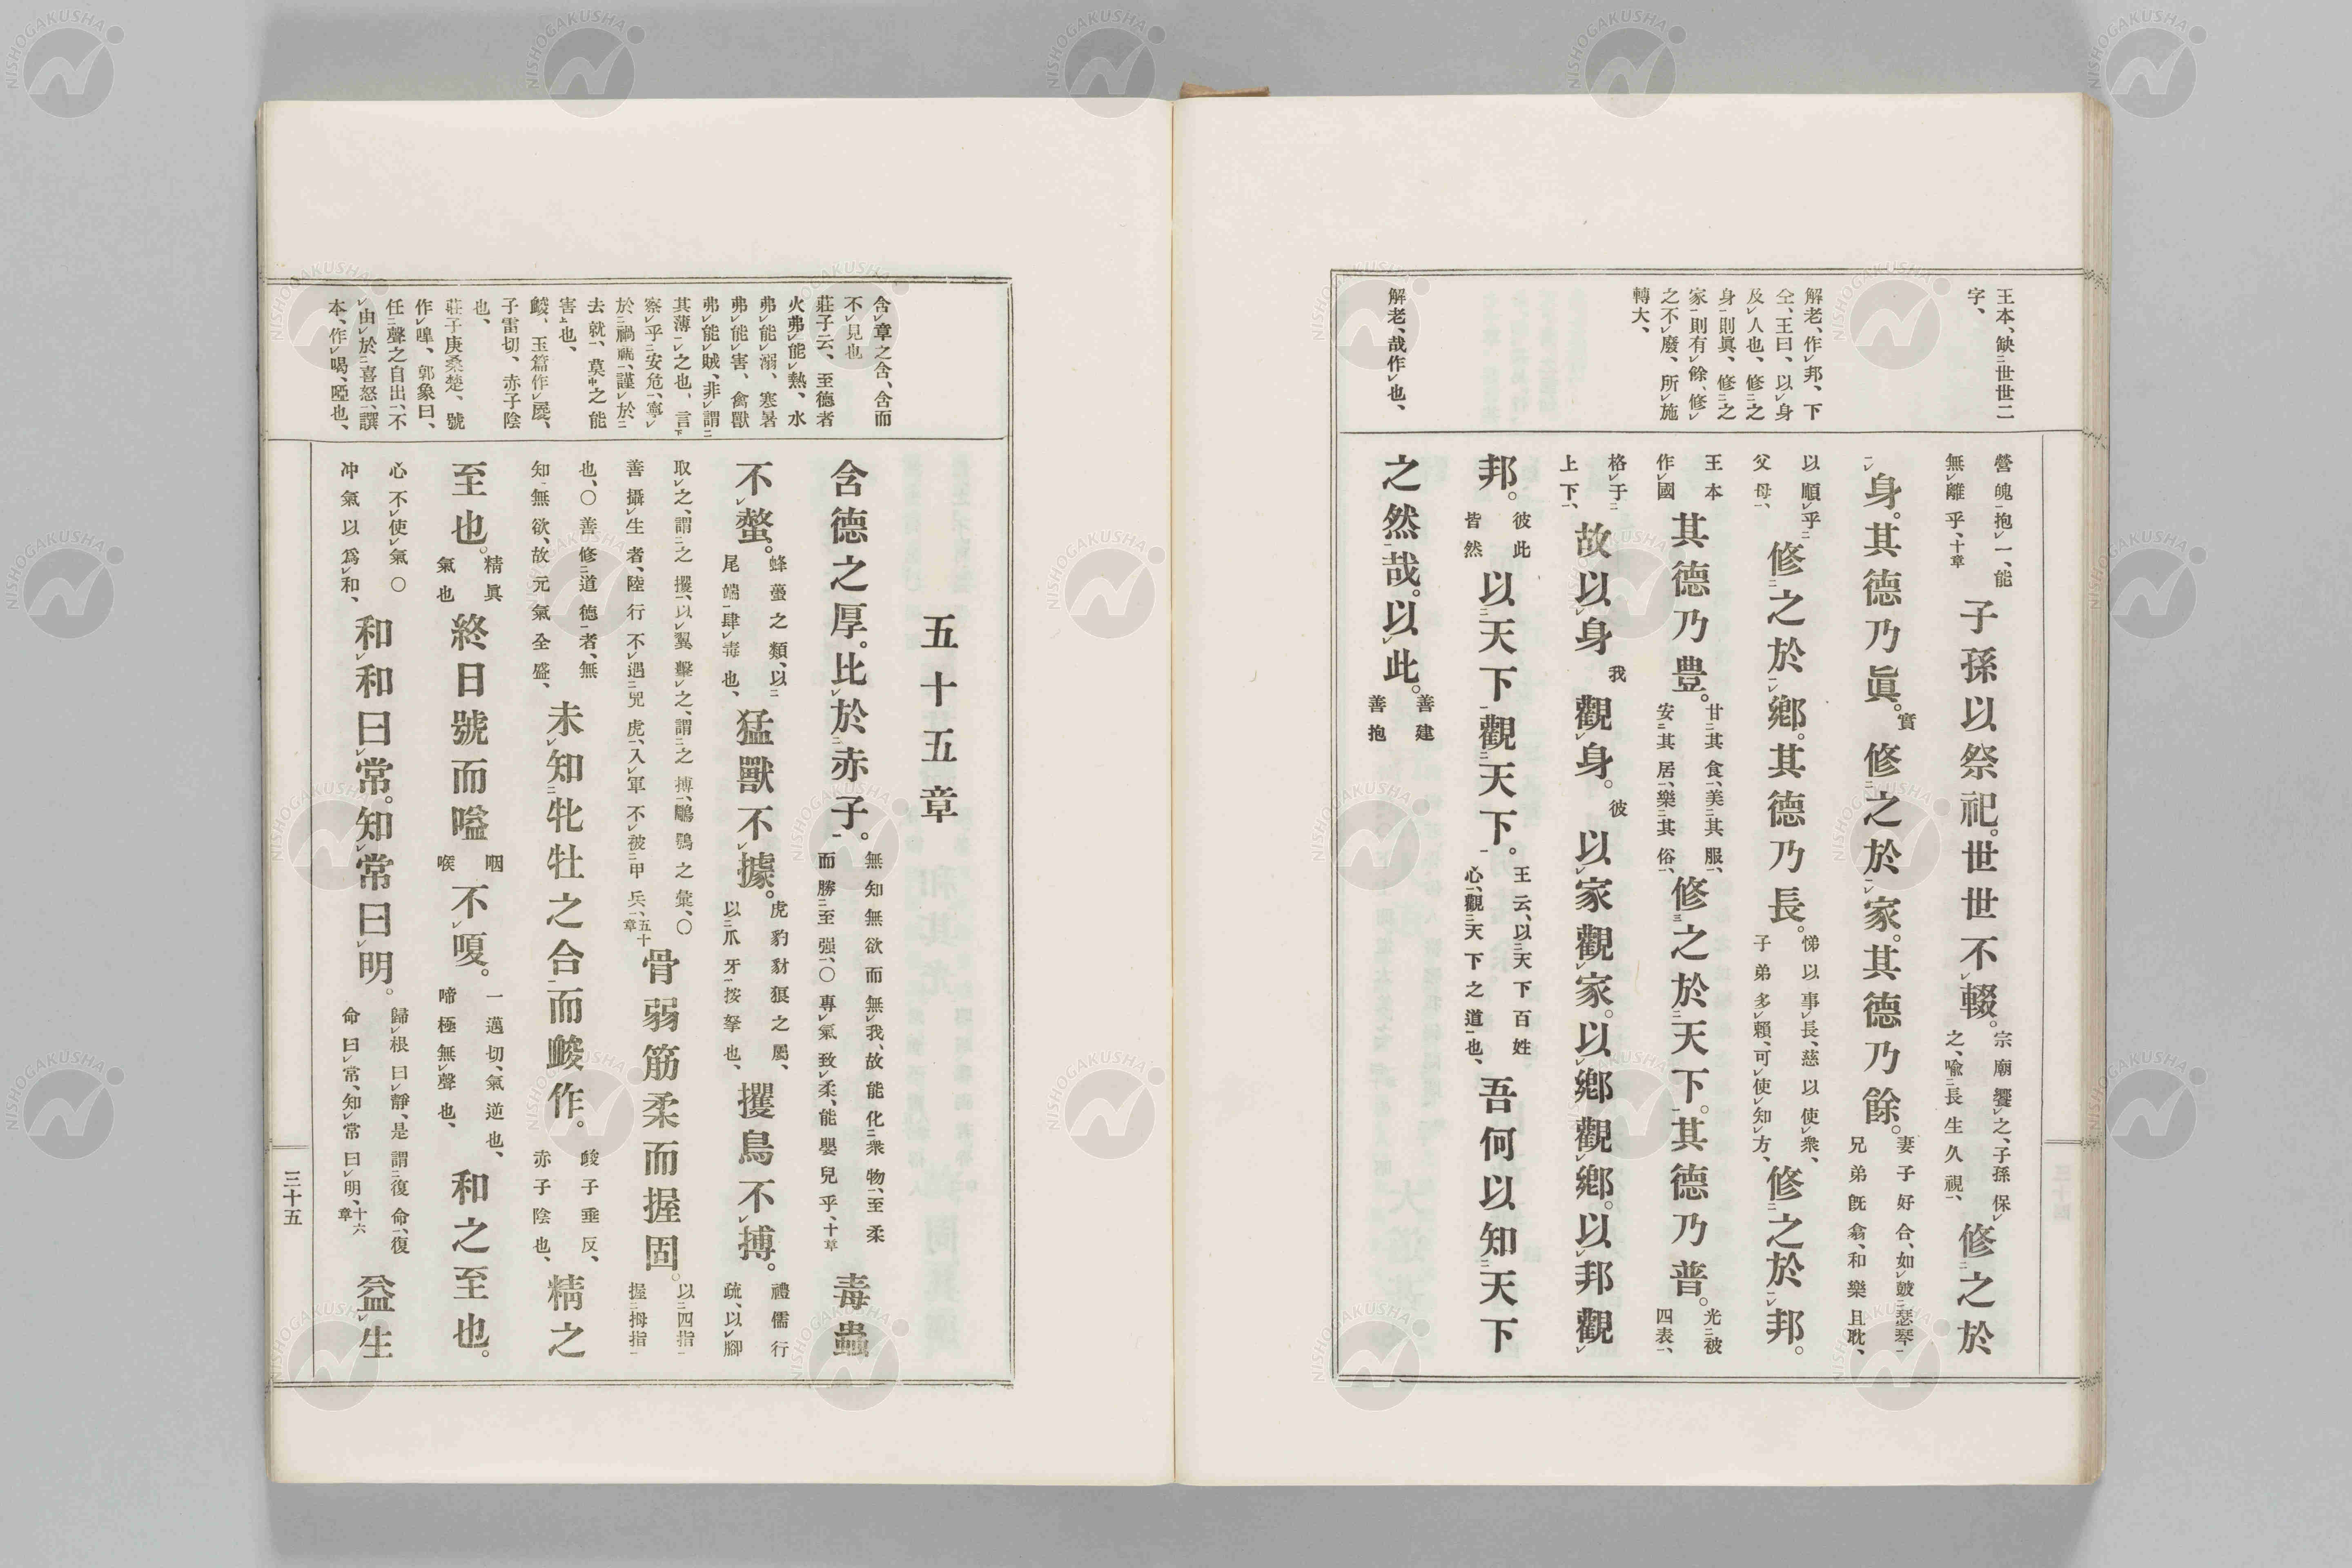 王本、缺㆓世世二
字、
解老、作㆑邦、下
仝、王曰、以㆑身
及㆑人也、修㆓之
身㆒則眞、修㆓之
家㆒則有㆑餘、修㆑
之不㆑廢、所㆑施
轉大、
解老、哉作㆑也、
營魄抱㆑一、能
無㆑離乎、十章
子孫以祭祀。世世不㆑輟。
宗廟饗㆑之、子孫保㆑
之、喩㆓長生久視㆒、
修㆓之於
㆑身。其德乃眞。
實
修㆓之於㆑家。其德乃餘。
妻子好合、如㆑鼓㆓瑟琴㆒
兄弟旣翕、和樂且耽、
以順㆑乎㆓
父母㆒、
修㆓之於㆑鄕。其德乃長。
悌以事㆑長、慈以使㆑衆、
子弟多㆑賴、可㆑使㆑知㆑方、
修㆓之於㆑邦。
王本
作㆑國
其德乃豊。
甘㆓其食㆒、美㆓其服㆒、
安㆓其居㆒、樂㆓其俗㆒、
修㆔之於㆓天下㆒。其德乃普。
光㆓被
四表㆒、
格㆑于㆓
上下㆒、
故以㆑身
我
觀㆑身。
彼
以㆑家觀㆑家。以㆑鄕觀㆑鄕。以㆑邦觀㆑
邦。
彼此
皆然
以㆓天下㆒觀㆓天下㆒。
王云、以㆓天下百姓
心㆒、觀㆓天下之道㆒也、
吾何以知㆓天下
之然㆒哉。以㆑此。
善建
善抱
含㆑章之含、含而
不㆑見也
莊子云、至德者
火弗㆑能㆑熱、水
弗㆑能㆑溺、寒暑
弗㆑能㆑害、禽獸
弗㆑能㆑賊、非㆑謂㆓
其薄㆒㆑之也、言㆘
察㆑乎㆓安危㆒、寧㆑
於㆓禍福㆒、謹㆑於㆓
去就㆒、莫㆗之能
害㆖也、
朘、玉篇作㆑屡、
子雷切、赤子陰
也、
莊子庚桑楚、號
作㆑嘷、郭象曰、
任㆓聲之自出㆒、不
㆑由㆑於㆓喜怒㆒、譔
本、作㆑喝、啞也、
五十五章
含德之厚。比㆑於㆓赤子㆒。
無知無欲而無㆑我、故能化㆓衆物㆒、至柔
而勝㆓至强㆒、○專㆑氣致㆑柔、能嬰兒乎、十章
毒蟲
不㆑螫。
蜂蠆之類、以㆓
尾端㆒肆㆑毒也、
猛獸不㆑據。
虎豹豺狼之屬、
以㆓爪牙㆒按拏也、
攫鳥不㆑搏。
禮儒行
疏、以㆑腳
取㆑之、謂㆓之攫㆒、以㆑翼擊㆑之、謂㆓之搏㆒、鵰鶚之彙、○
善攝㆑生者、陸行不㆑遇㆓兕虎㆒、入㆑軍不㆑被㆓甲兵㆒、五十章
骨弱筋柔而握固。
以㆓四指㆒
握㆓拇指㆒
也、○善修㆓道德㆒者、無
知無欲、故元氣全盛、
未㆑知㆓牝牡之合㆒而朘作。
朘子垂反、
赤子陰也、
精之
至也。
精眞
氣也
終日號而嗌
咽
喉
不㆑嗄。
一邁切、氣逆也、
啼極無㆑聲也、
和之至也。
心不㆑使㆑氣○
冲氣以爲㆑和、
和㆑和曰㆑常。知㆑常曰㆑明。
歸㆑根曰㆑靜、是謂㆓復命㆒、復
命曰㆑常、知㆑常曰㆑明、十六章
益㆑生
三十五